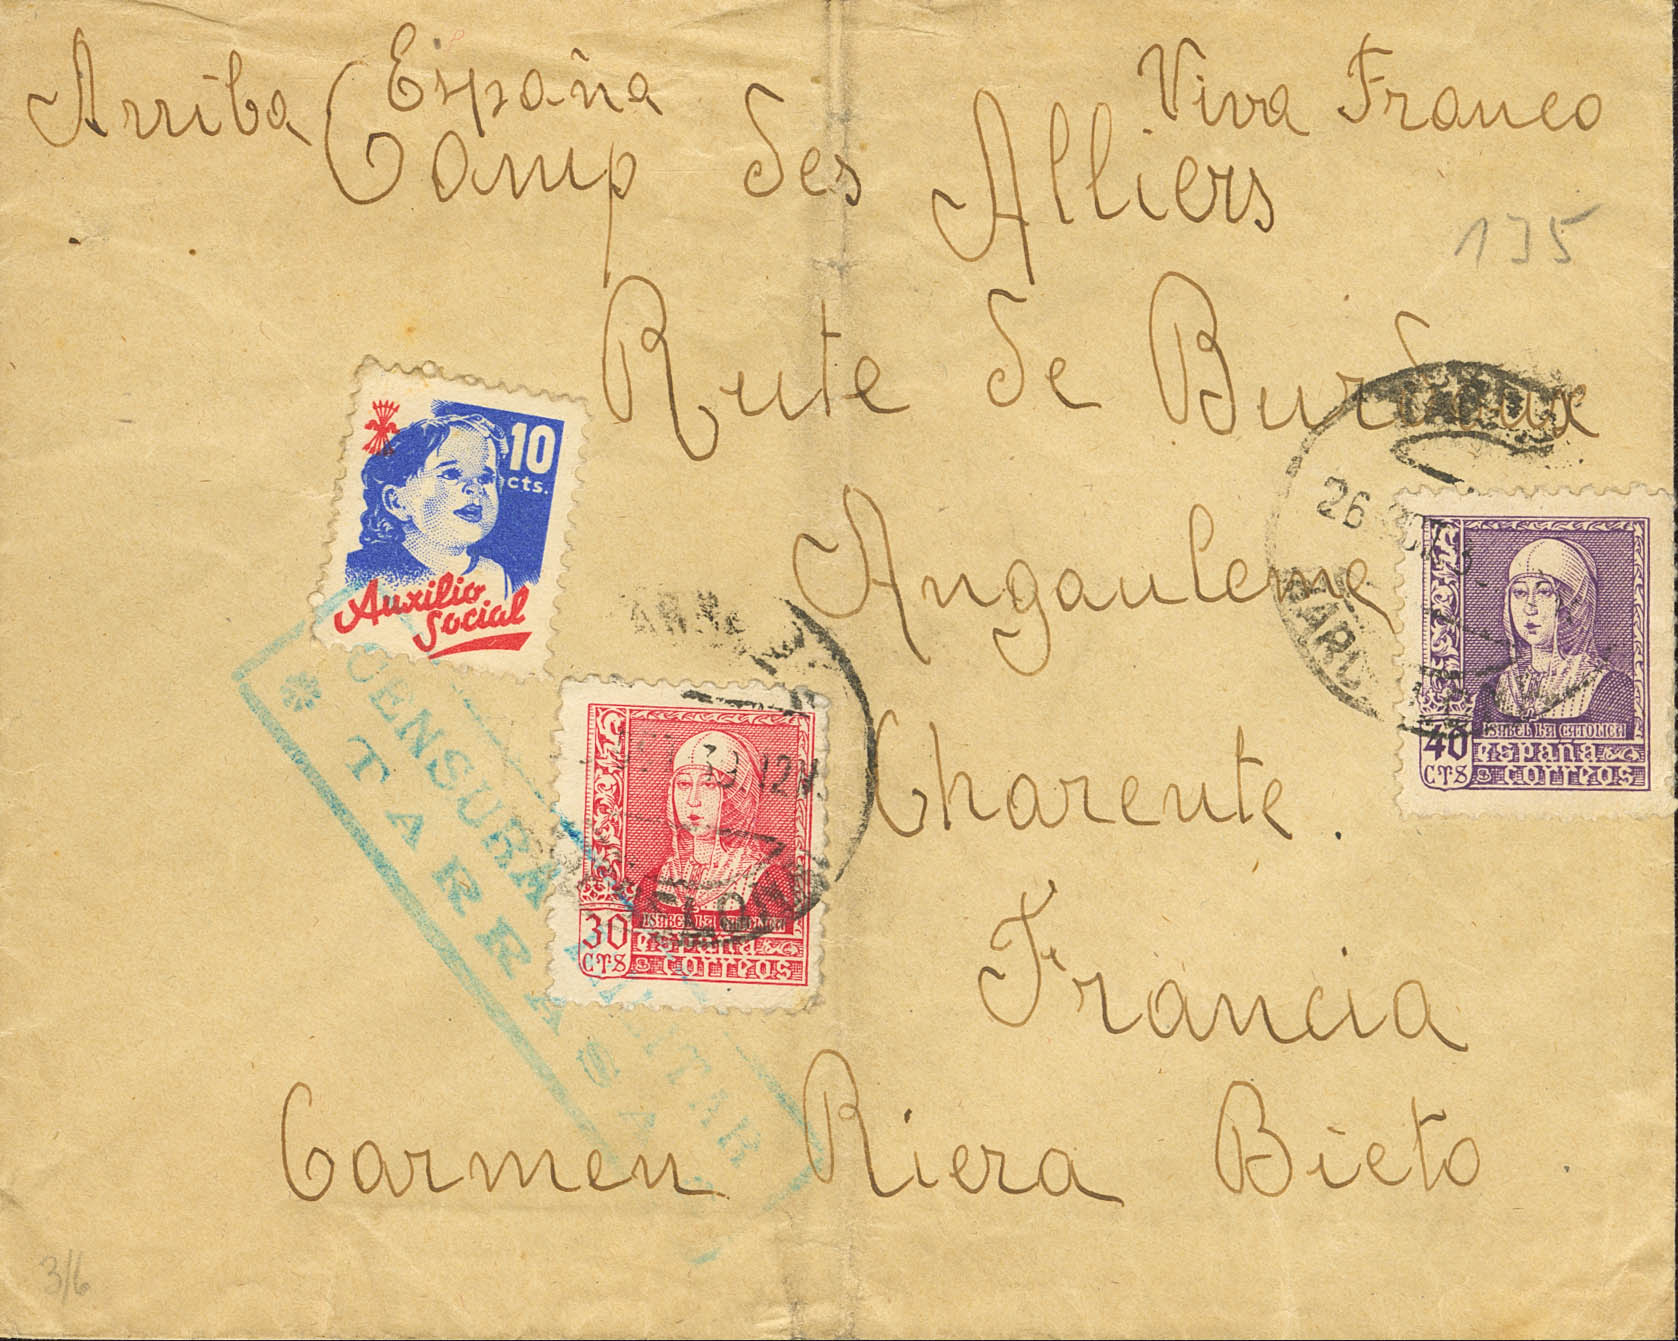 Arriba España Viva Franco
Camp des Alliers
135
Rute de Burdaux
Angauleme
Charente.
Francia
Carmen Riera Bieto
10
cts.
Auxilio
Social
CENSURA MILITAR
TARRASA
26 OCT
39 12M
30
CTS
ISABEL LA CATOLICA
españa
correos
40
CTS
ISABEL LA CATOLICA
españa
correos
3/6